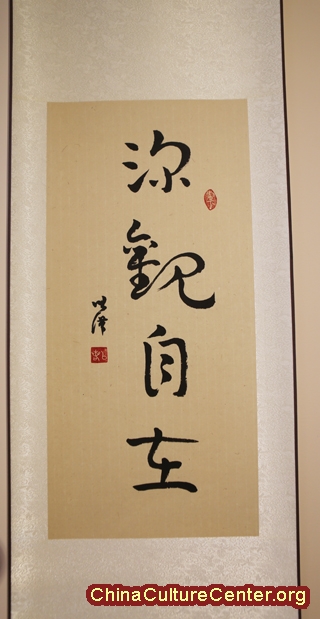 深觀自在
ChinaCultureCenter.org